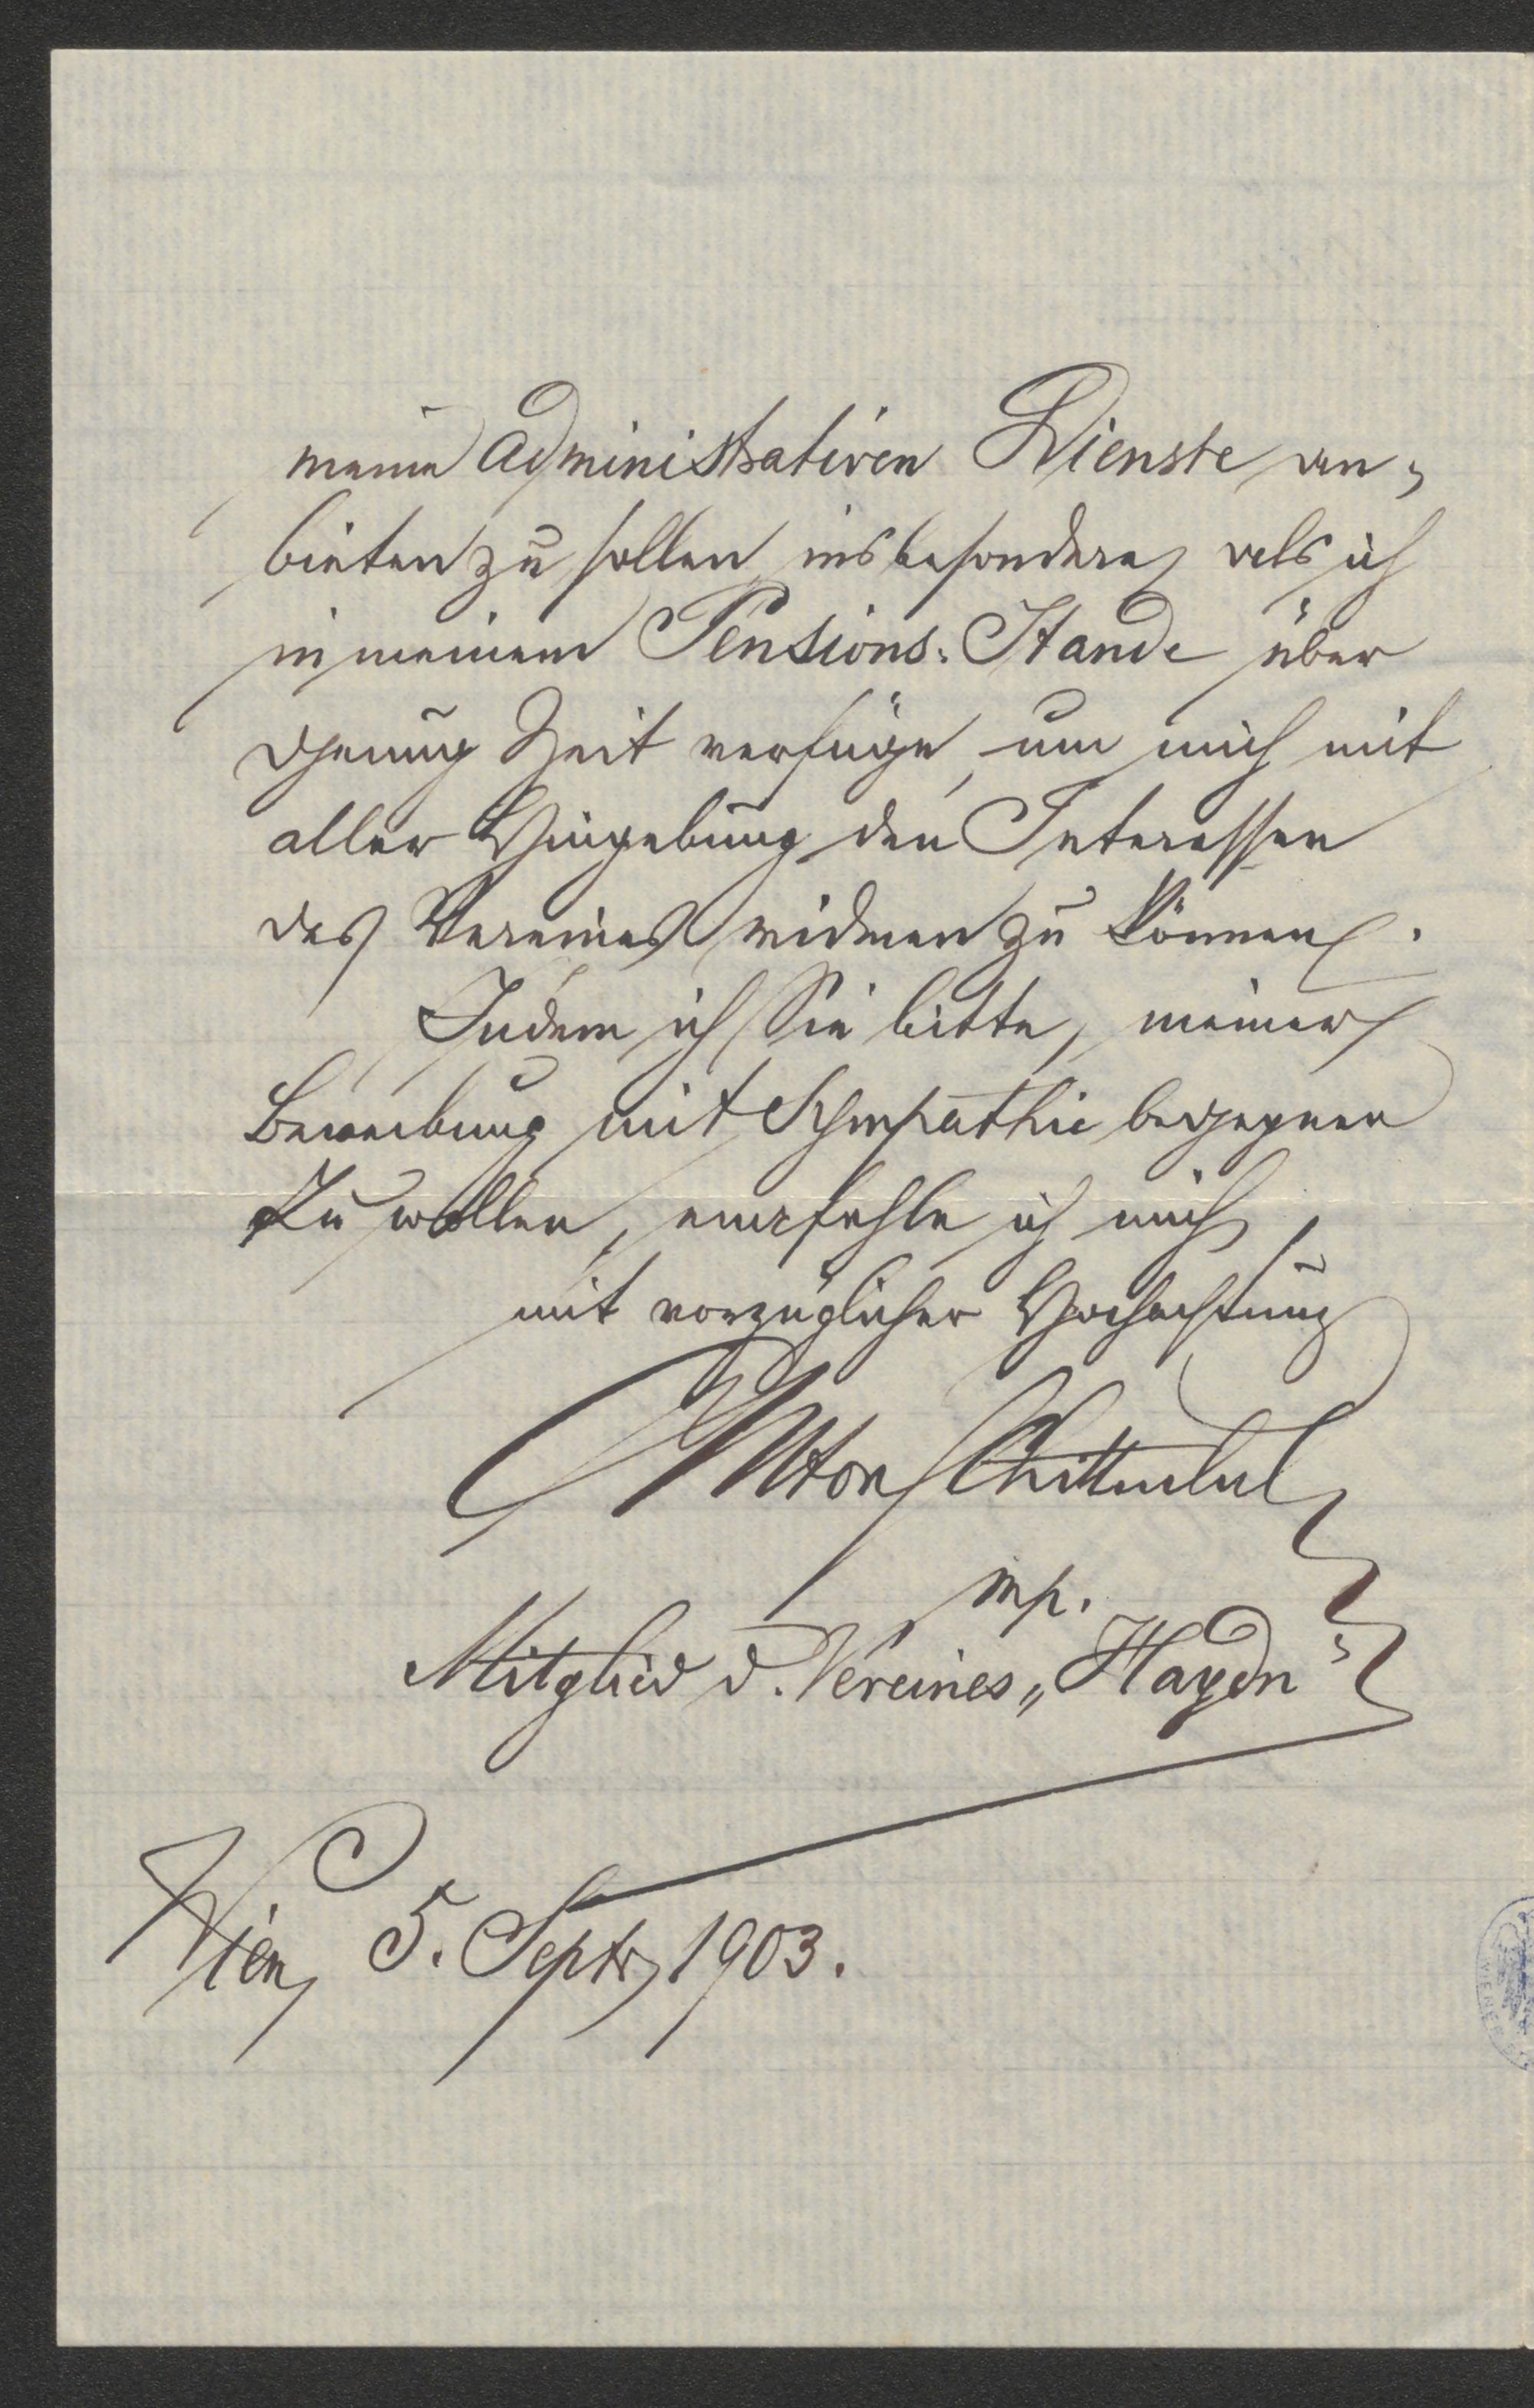 meine administrativen Dienste an=
bieten zu sollen, insbesondere, als ich
in meinem Pensions=Stande über
genug Zeit verfüge, um mich mit
aller Hingebung den Interessen
des Vereines widmen zu können.
Indem ich Sie bitte, meiner
Bewerbung mit Sympathie begegnen
zu wollen, empfehle ich mich
mit vorzüglicher Hochachtung
Anton
mp.
Mitglied d. Vereines „Haydn"
Wien, 5. Septr 1903.